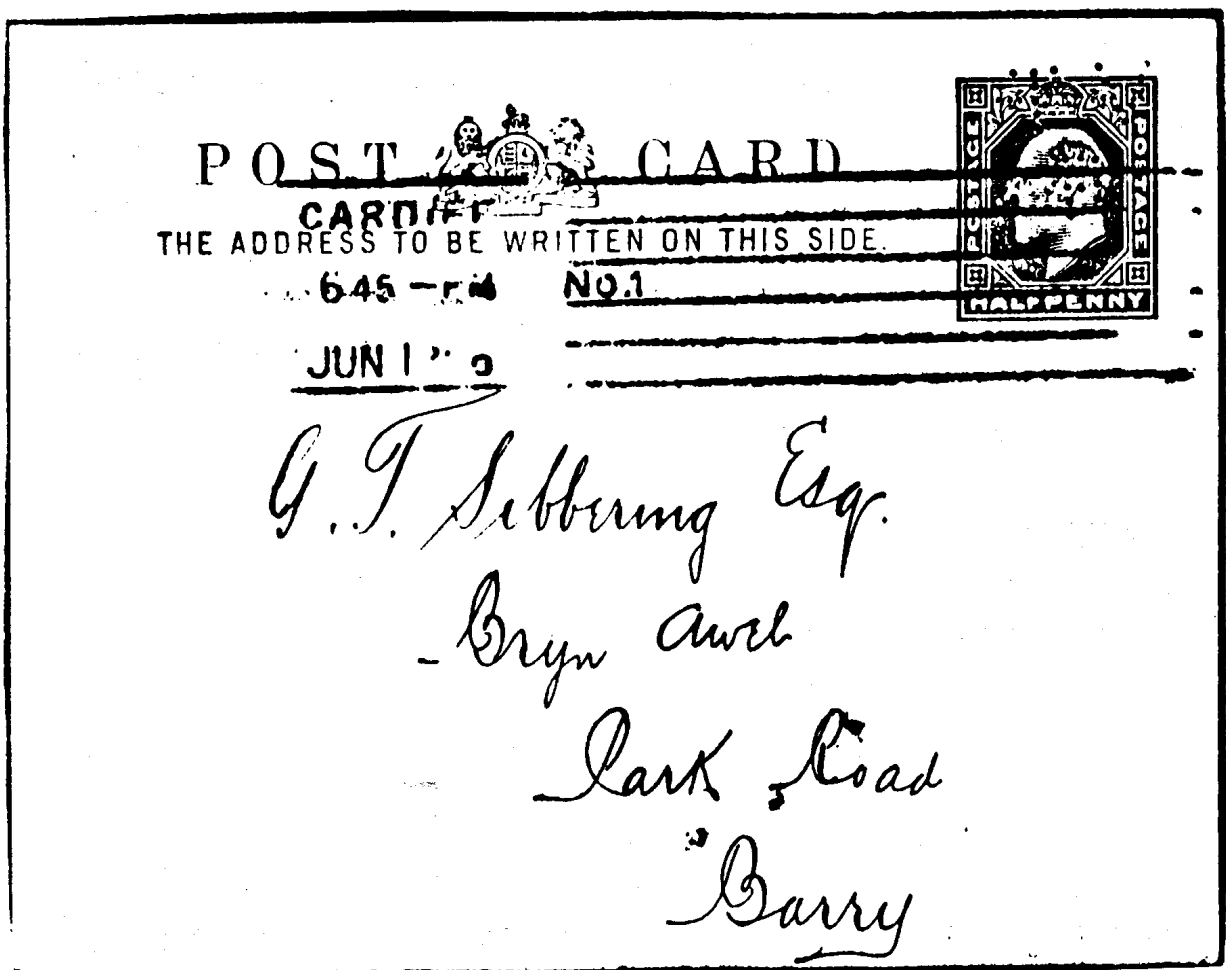 POST CARD
THE ADDRESS TO BE WRITTEN ON THIS SIDE.
CARDIFF
6.45 – PM NO.1
JUN 1
POSTAGE POSTAGE
HALFPENNY
G. T. Sibbering Esq.
Bryn Awel
Park Road
Barry